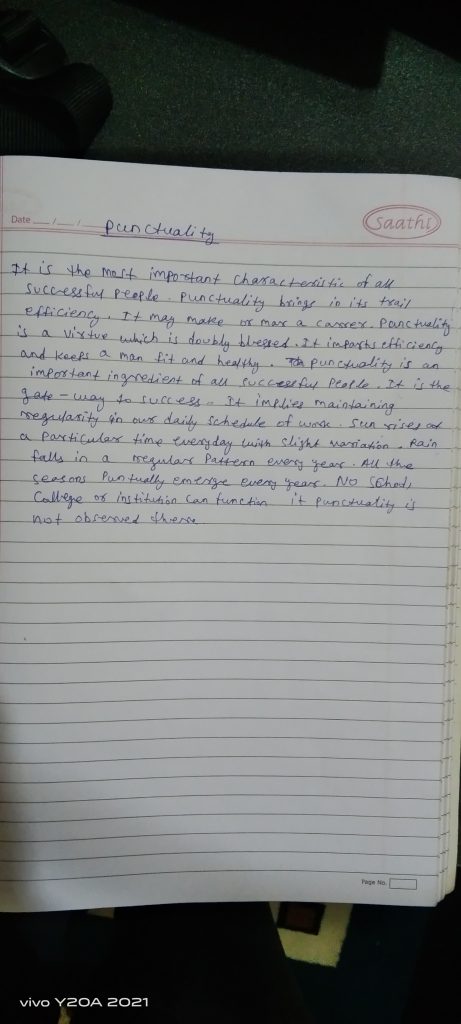 Saathi
Date __/__/__
Punctuality
It is the most important characteristic of all
successful people. Punctuality brings in its trail
efficiency. It may make or mar a career. Panctuality
is a virtue which is doubly blessed. It imparts efficiency
and keeps a man fit and healthy. Punctuality is an
important ingredient of all successful people. It is the
gate-way to success. It implies maintaining
regularity in our daily schedule of work. Sun rises at
a particular time everyday with slight variation. Rain
falls in a regular pattern every year. All the
seasons Puntually emerge every year. No School,
College or institution can function it punctuality is
not observed there
Page No.
vivo Y20A 2021